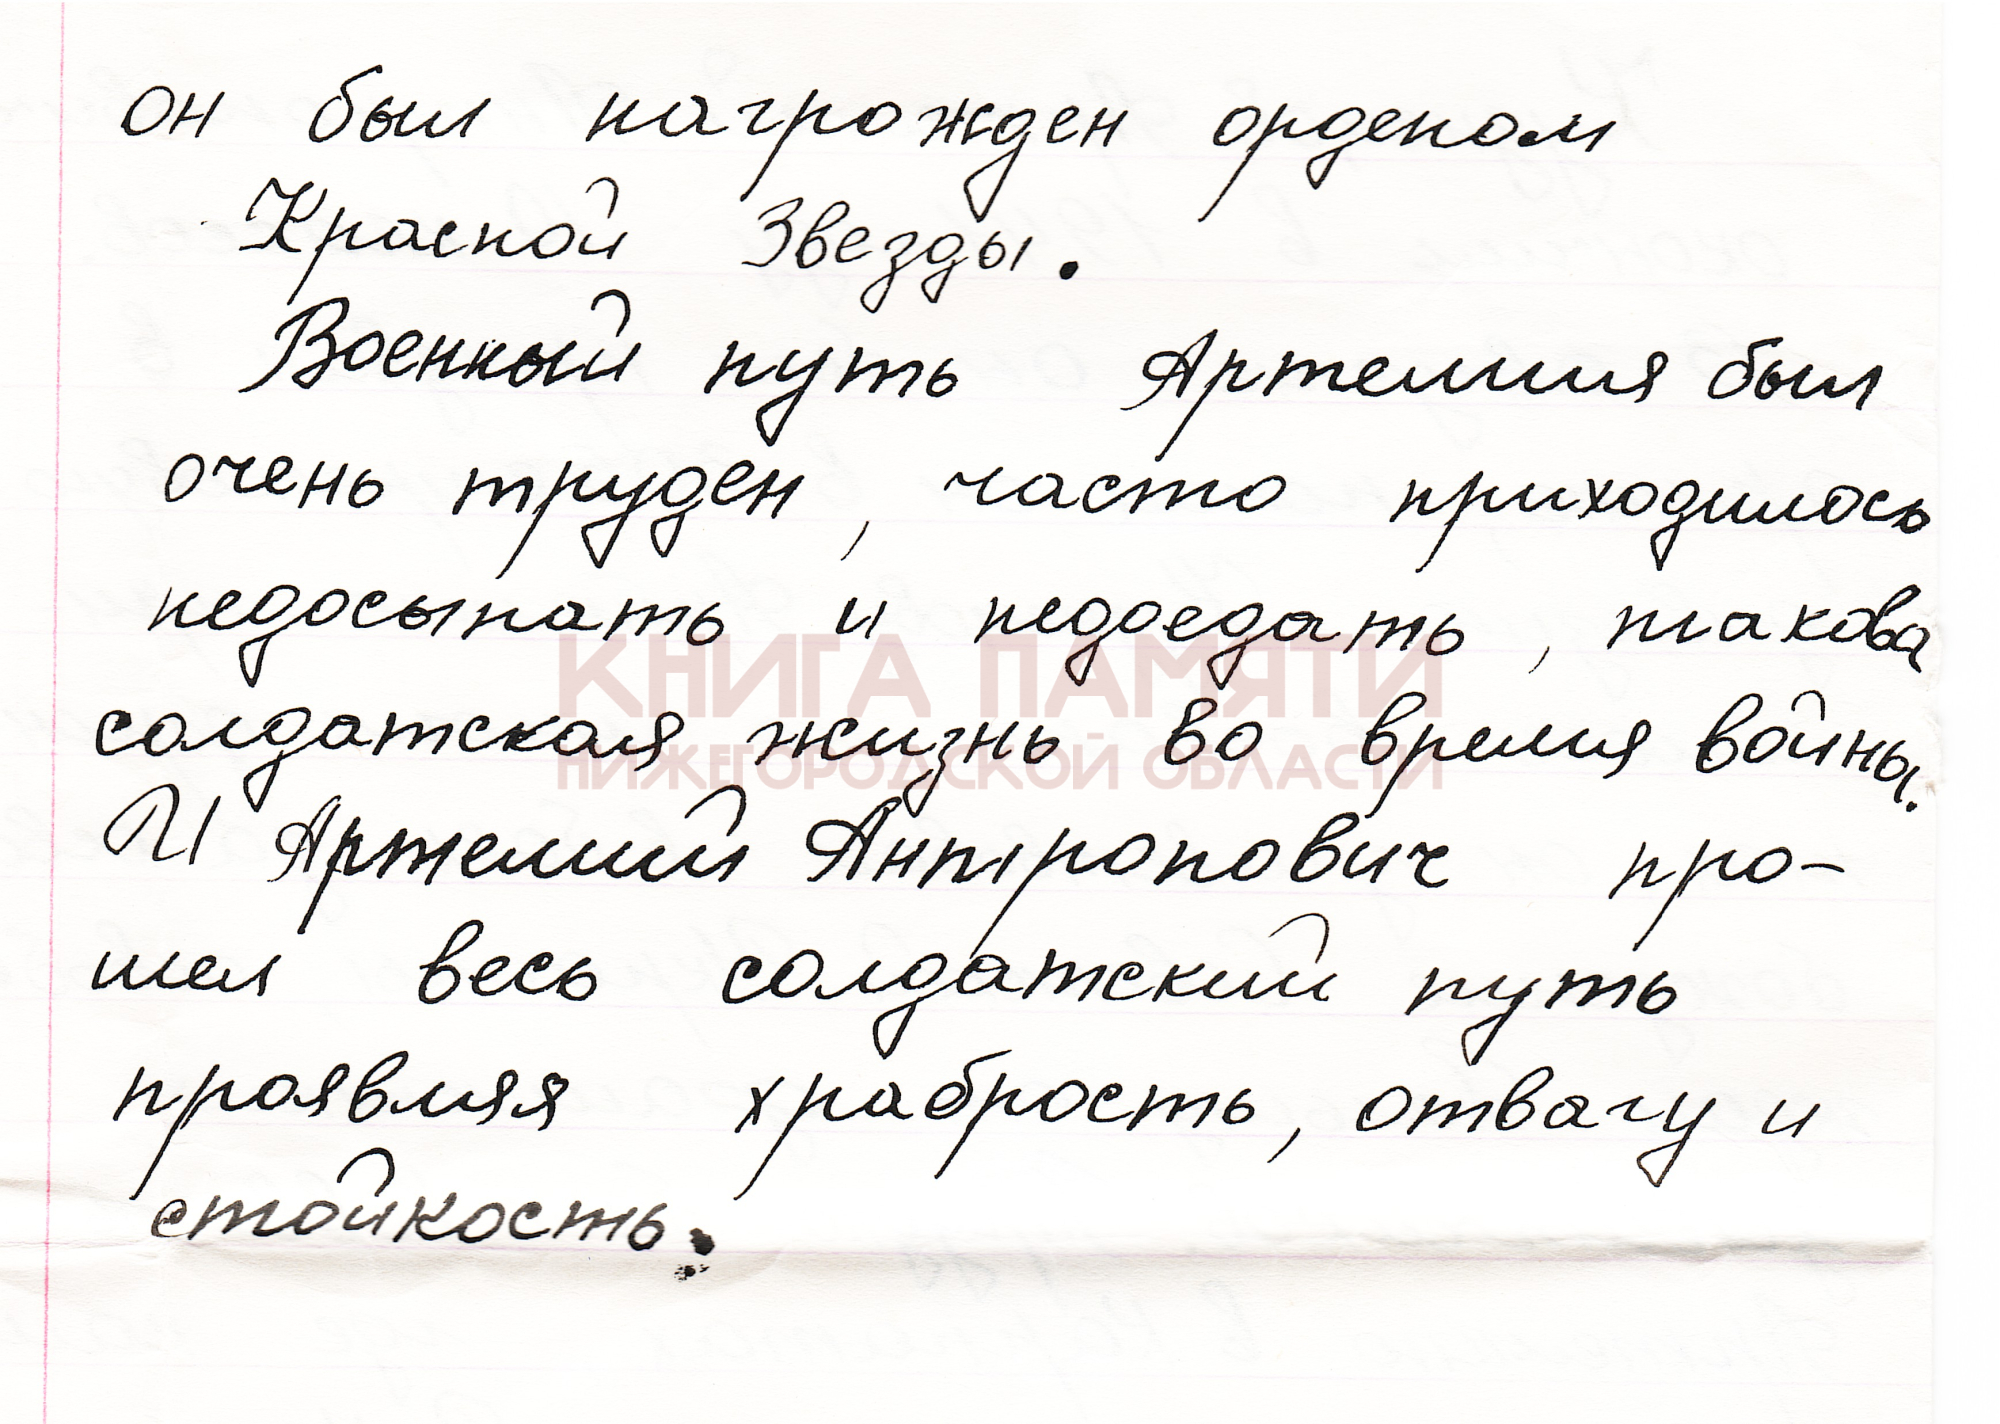 он был награжден орденом
Красной Звезды.
Военный путь Артемия был
очень труден, часто приходилось
недосыпать и недоедать, такова
КНИГА ПАМЯТИ
солдатская жизнь во время войны.
НИЖЕГОРОДСКОЙ ОБЛАСТИ
И Артемий Антропович про-
шел весь солдатский путь
проявляя храбрость, отвагу и
стойкость.